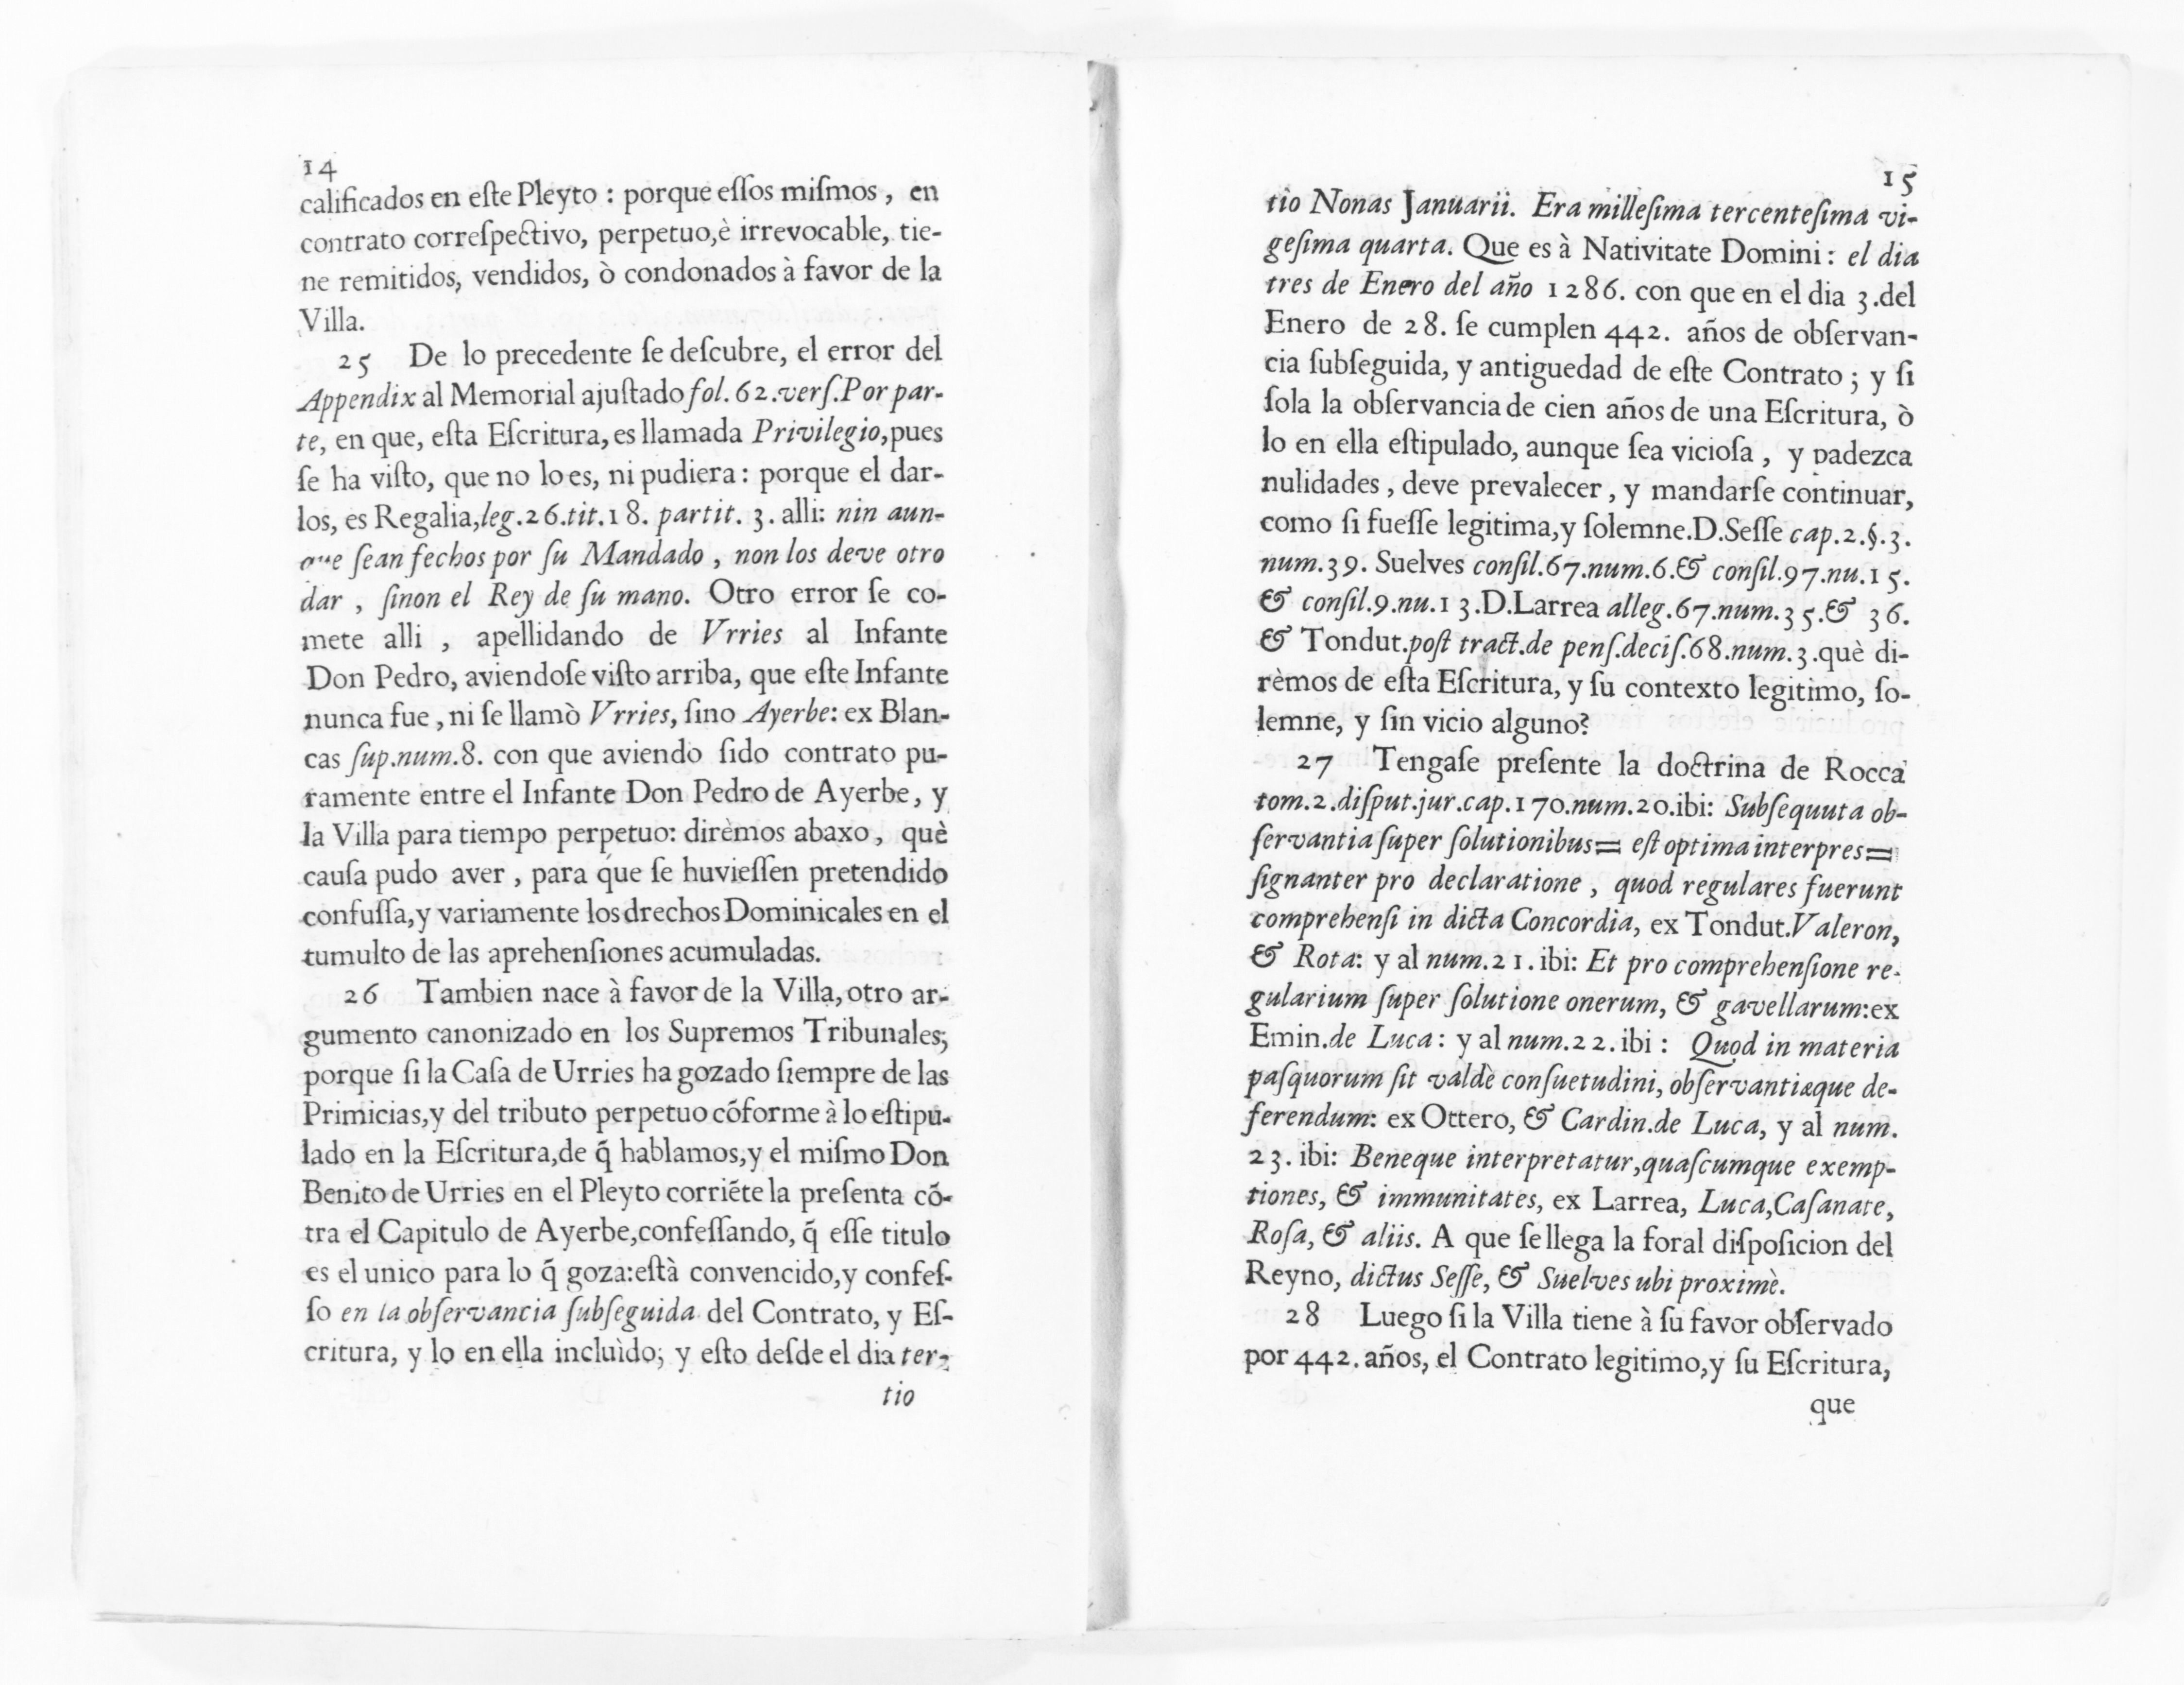 14
calificados en eſte Pleyto : porque eſſos miſmos , en
contrato correſpectivo, perpetuo,è irrevocable, tie-
ne remitidos, vendidos, ò condonados à favor de la
Villa.
25 De lo precedente ſe deſcubre, el error del
Appendix al Memorial ajuſtado fol. 62.verſ.Por par-
te, en que, eſta Eſcritura, es llamada Privilegio,pues
ſe ha viſto, que no lo es, ni pudiera : porque el dar-
los, es Regalia,leg.26.tit.18. partit. 3. alli: nin aun-
que ſean fechos por ſu Mandado , non los deve otro
dar , ſinon el Rey de ſu mano. Otro error ſe co-
mete alli , apellidando de Vrries al Infante
Don Pedro, aviendoſe viſto arriba, que eſte Infante
nunca fue , ni ſe llamò Vrries, ſino Ayerbe: ex Blan-
cas ſup.num.8. con que aviendo ſido contrato pu-
ramente entre el Infante Don Pedro de Ayerbe, y
la Villa para tiempo perpetuo: dirèmos abaxo , què
cauſa pudo aver , para que ſe huvieſſen pretendido
confuſſa,y variamente los drechos Dominicales en el
tumulto de las aprehenſiones acumuladas.
26 Tambien nace à favor de la Villa, otro ar-
gumento canonizado en los Supremos Tribunales;
porque ſi la Caſa de Urries ha gozado ſiempre de las
Primicias,y del tributo perpetuo cõforme à lo eſtipu-
lado en la Eſcritura,de q̃ hablamos,y el miſmo Don
Benito de Urries en el Pleyto corriẽte la preſenta cõ-
tra el Capitulo de Ayerbe,confeſſando, q̃ eſſe titulo
es el unico para lo q̃ goza:eſtà convencido,y confeſ-
ſo en la obſervancia ſubſeguida del Contrato, y Eſ-
critura, y lo en ella incluìdo; y eſto deſde el dia ter-
tio
15
tio Nonas Januarii. Era milleſima tercenteſima vi-
geſima quarta. Que es à Nativitate Domini : el dia
tres de Enero del año 1286. con que en el dia 3.del
Enero de 28. ſe cumplen 442. años de obſervan-
cia ſubſeguida, y antiguedad de eſte Contrato ; y ſi
ſola la obſervancia de cien años de una Eſcritura, ò
lo en ella eſtipulado, aunque ſea vicioſa , y padezca
nulidades , deve prevalecer , y mandarſe continuar,
como ſi fueſſe legitima,y ſolemne.D.Seſſe cap.2.§.3.
num.39. Suelves conſil.67.num.6.& conſil.97.nu.15.
& conſil.9.nu.13.D.Larrea alleg.67.num.35.& 36.
& Tondut.poſt tract.de penſ.deciſ.68.num.3.què di-
rèmos de eſta Eſcritura, y ſu contexto legitimo, ſo-
lemne, y ſin vicio alguno?
27 Tengaſe preſente la doctrina de Rocca
tom.2.diſput.jur.cap.170.num.20.ibi: Subſequuta ob-
ſervantia ſuper ſolutionibus= eſt optima interpres=
ſignanter pro declaratione , quod regulares fuerunt
comprehenſi in dicta Concordia, ex Tondut.Valeron,
& Rota: y al num.21.ibi: Et pro comprehenſione re-
gularium ſuper ſolutione onerum, & gavellarum:ex
Emin.de Luca : y al num.22.ibi : Quod in materia
paſquorum ſit valdè conſuetudini, obſervantiæque de-
ferendum: ex Ottero, & Cardin.de Luca, y al num.
23. ibi: Beneque interpretatur,quaſcumque exemp-
tiones, & immunitates, ex Larrea, Luca,Caſanate,
Roſa, & aliis. A que ſe llega la foral diſpoſicion del
Reyno, dictus Seſſe, & Suelves ubi proximè.
28 Luego ſi la Villa tiene à ſu favor obſervado
por 442. años, el Contrato legitimo,y ſu Eſcritura,
que